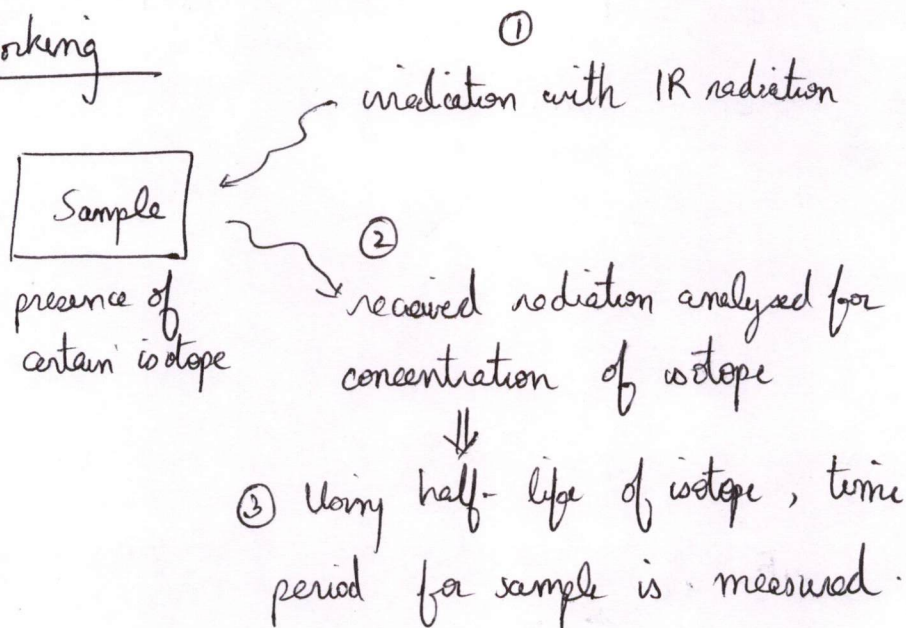 orking
①
irradiation with IR radiation
Sample
②
presence of
certain isotope
received radiation analysed for
concentration of isotope
⇓
③ Using half-life of isotope, time
period for sample is measured.